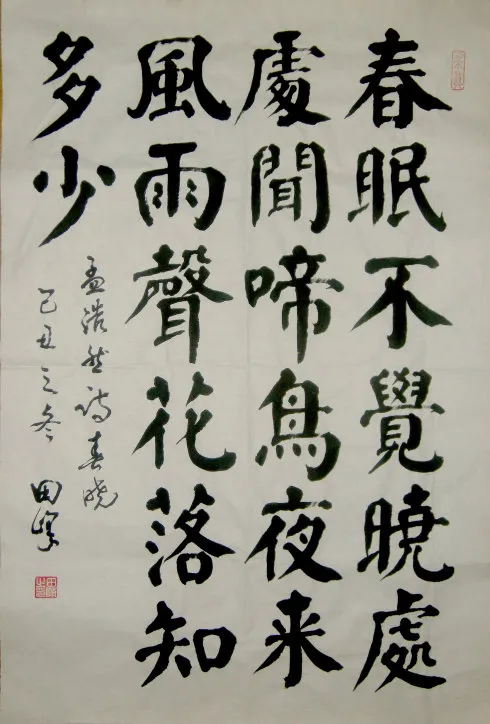 春眠不覺曉處
處聞啼鳥夜来
風雨聲花落知
多少
孟浩然詩春曉
己丑之冬 田峰